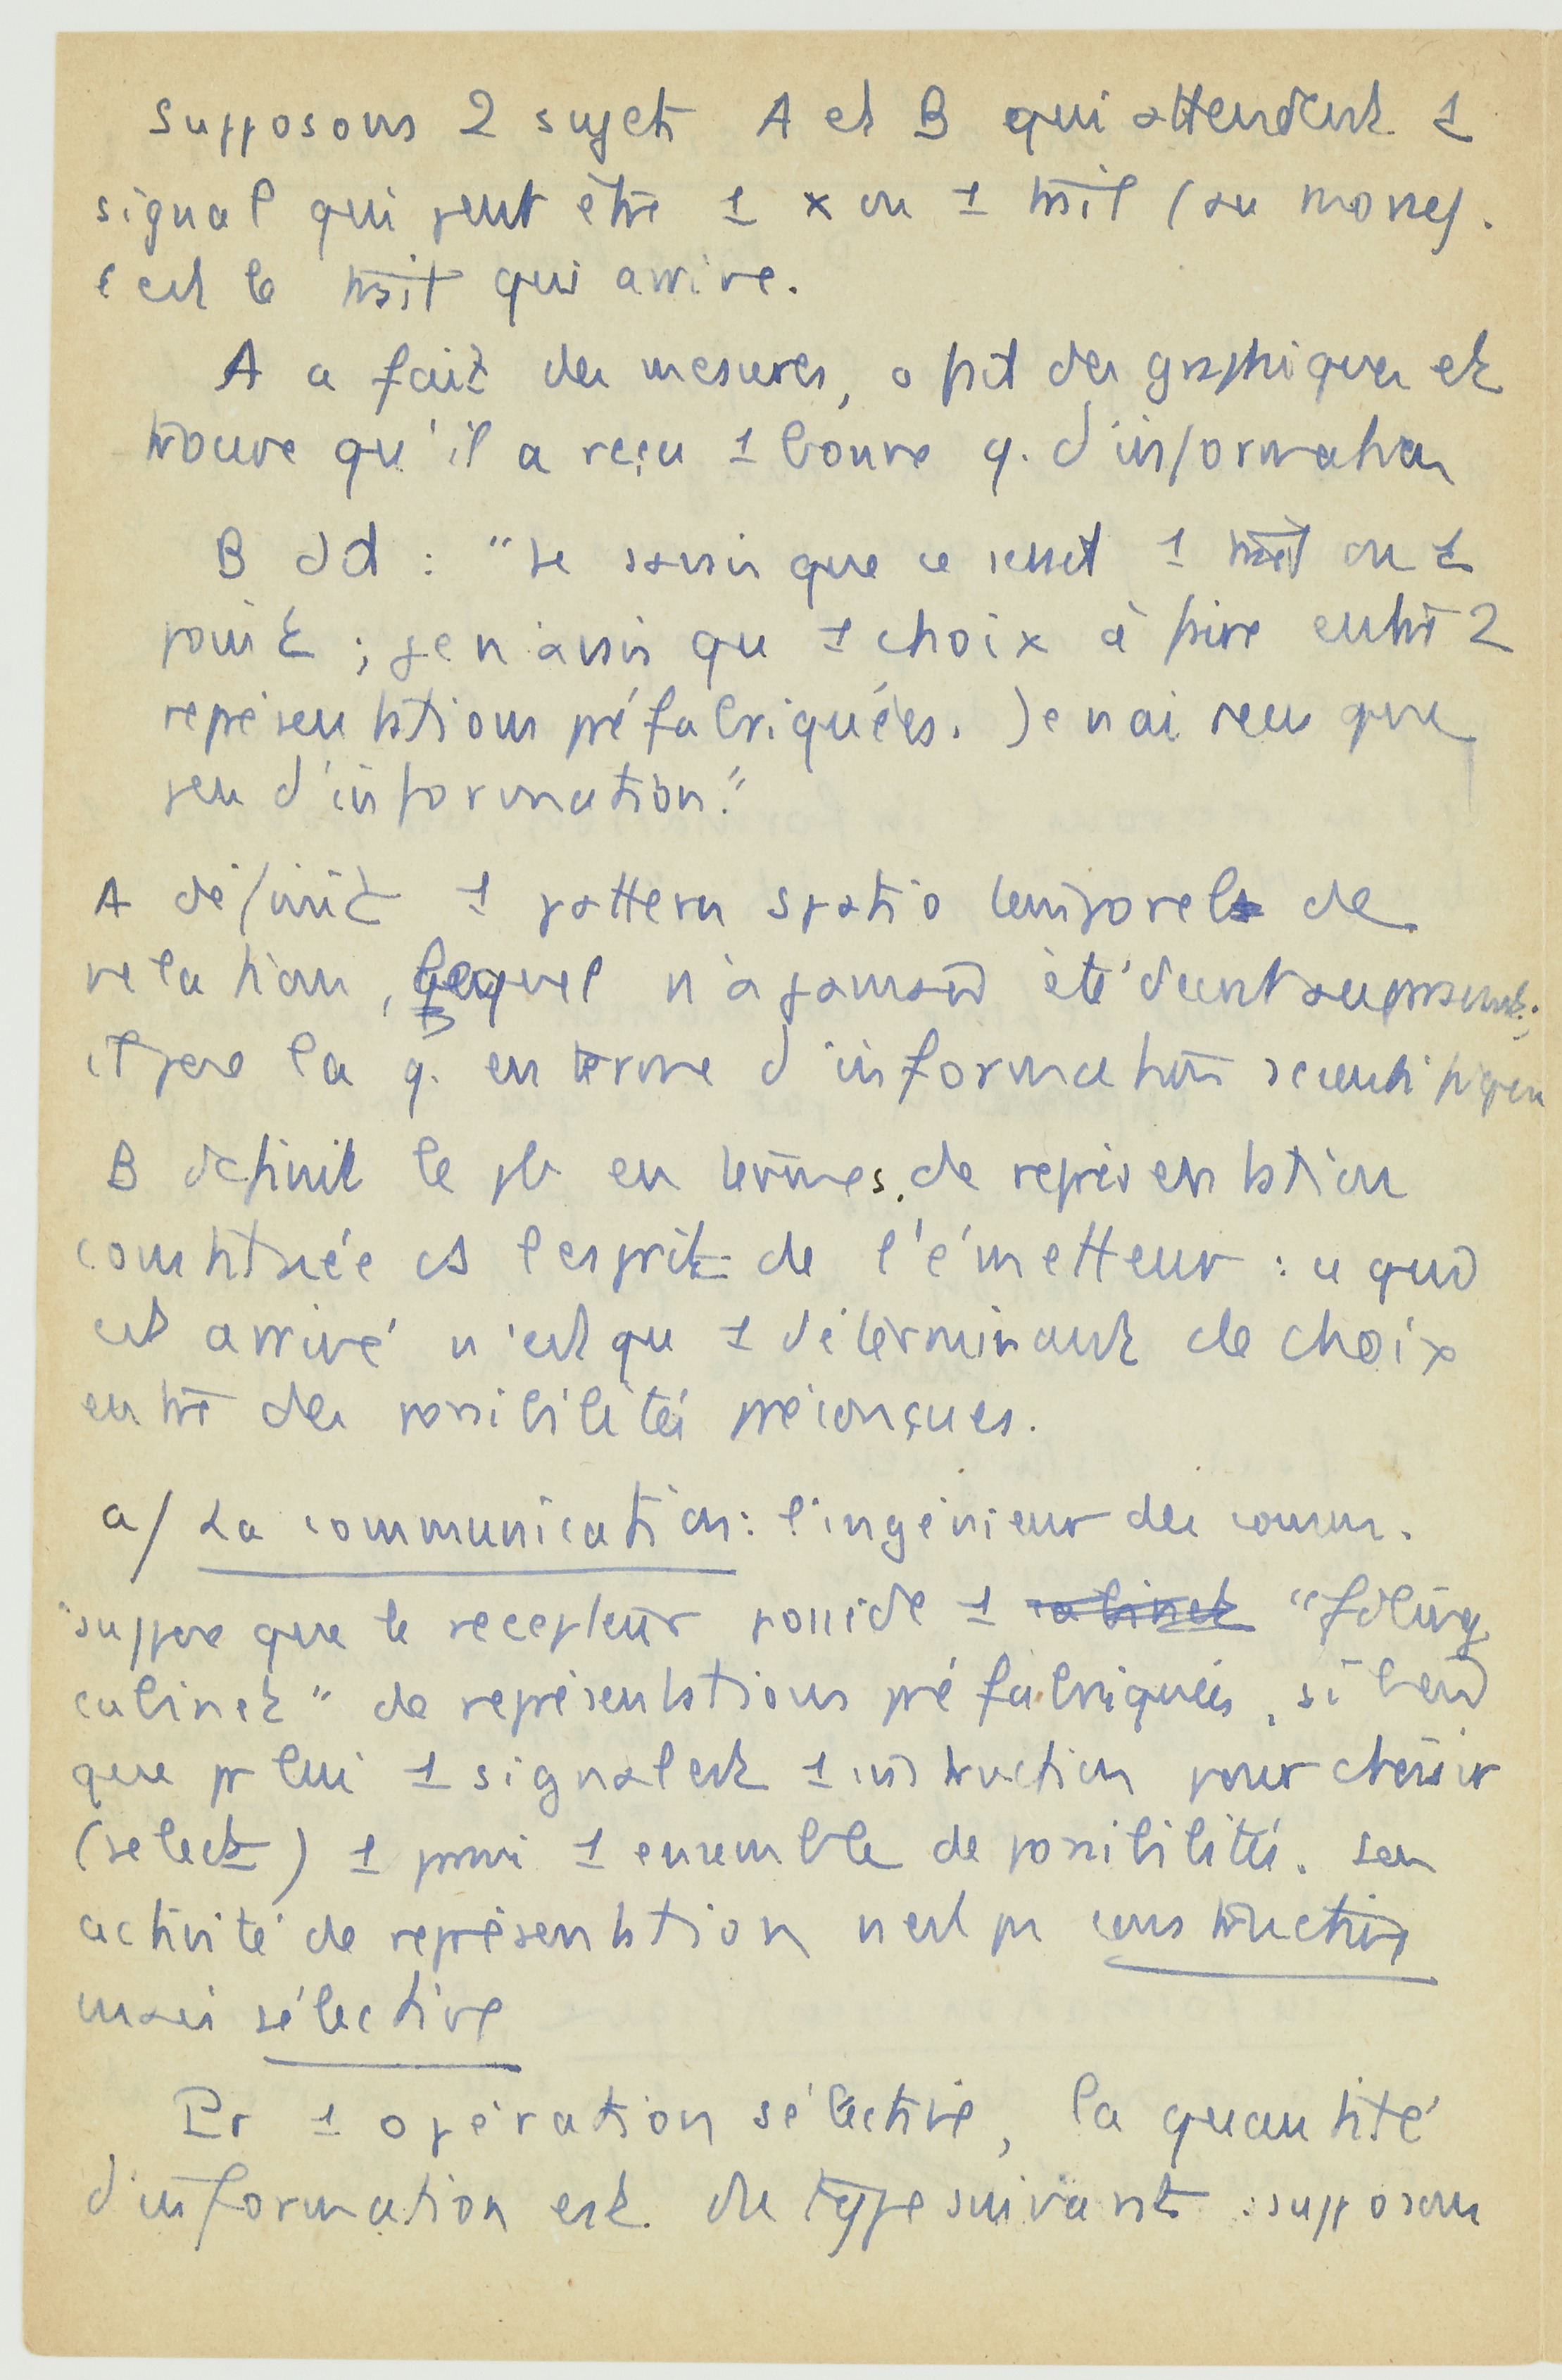 Supposons 2 sujets A et B qui attendent 1
signal qui peut être 1 x ou 1 trait (au morse).
C'est le trait qui arrive.
A a fait des mesures, a fait des graphiques et
trouve qu'il a reçu 1 bonne q. d'information
B dit : "Je savais que ce serait 1 trait ou 1
point ; je n'avais qu'1 choix à faire entre 2
représentations préfabriquées. Je n'ai reçu que
peu d'information."
A définit 1 pattern spatio temporel de
relation, lequel n'a jamais été décrit auparavant ;
il pose la q. en terme d'information scientifique
B définit le pb en termes de représentation
construite ds l'esprit de l'émetteur : ce qui
est arrivé n'est qu'1 déterminant de choix
entre des possibilités préconçues.
a/ La communication : l'ingénieur des comm.
suppose que le récepteur possède 1 cabinet "filing
cabinet" de représentations préfabriquées, si bien
que pr lui 1 signal est 1 instruction pour choisir
(select) 1 parmi 1 ensemble de possibilités. Son
activité de représentation n'est pas constructive
mais sélective
Pr 1 opération sélective, la quantité
d'information est du type suivant : supposons